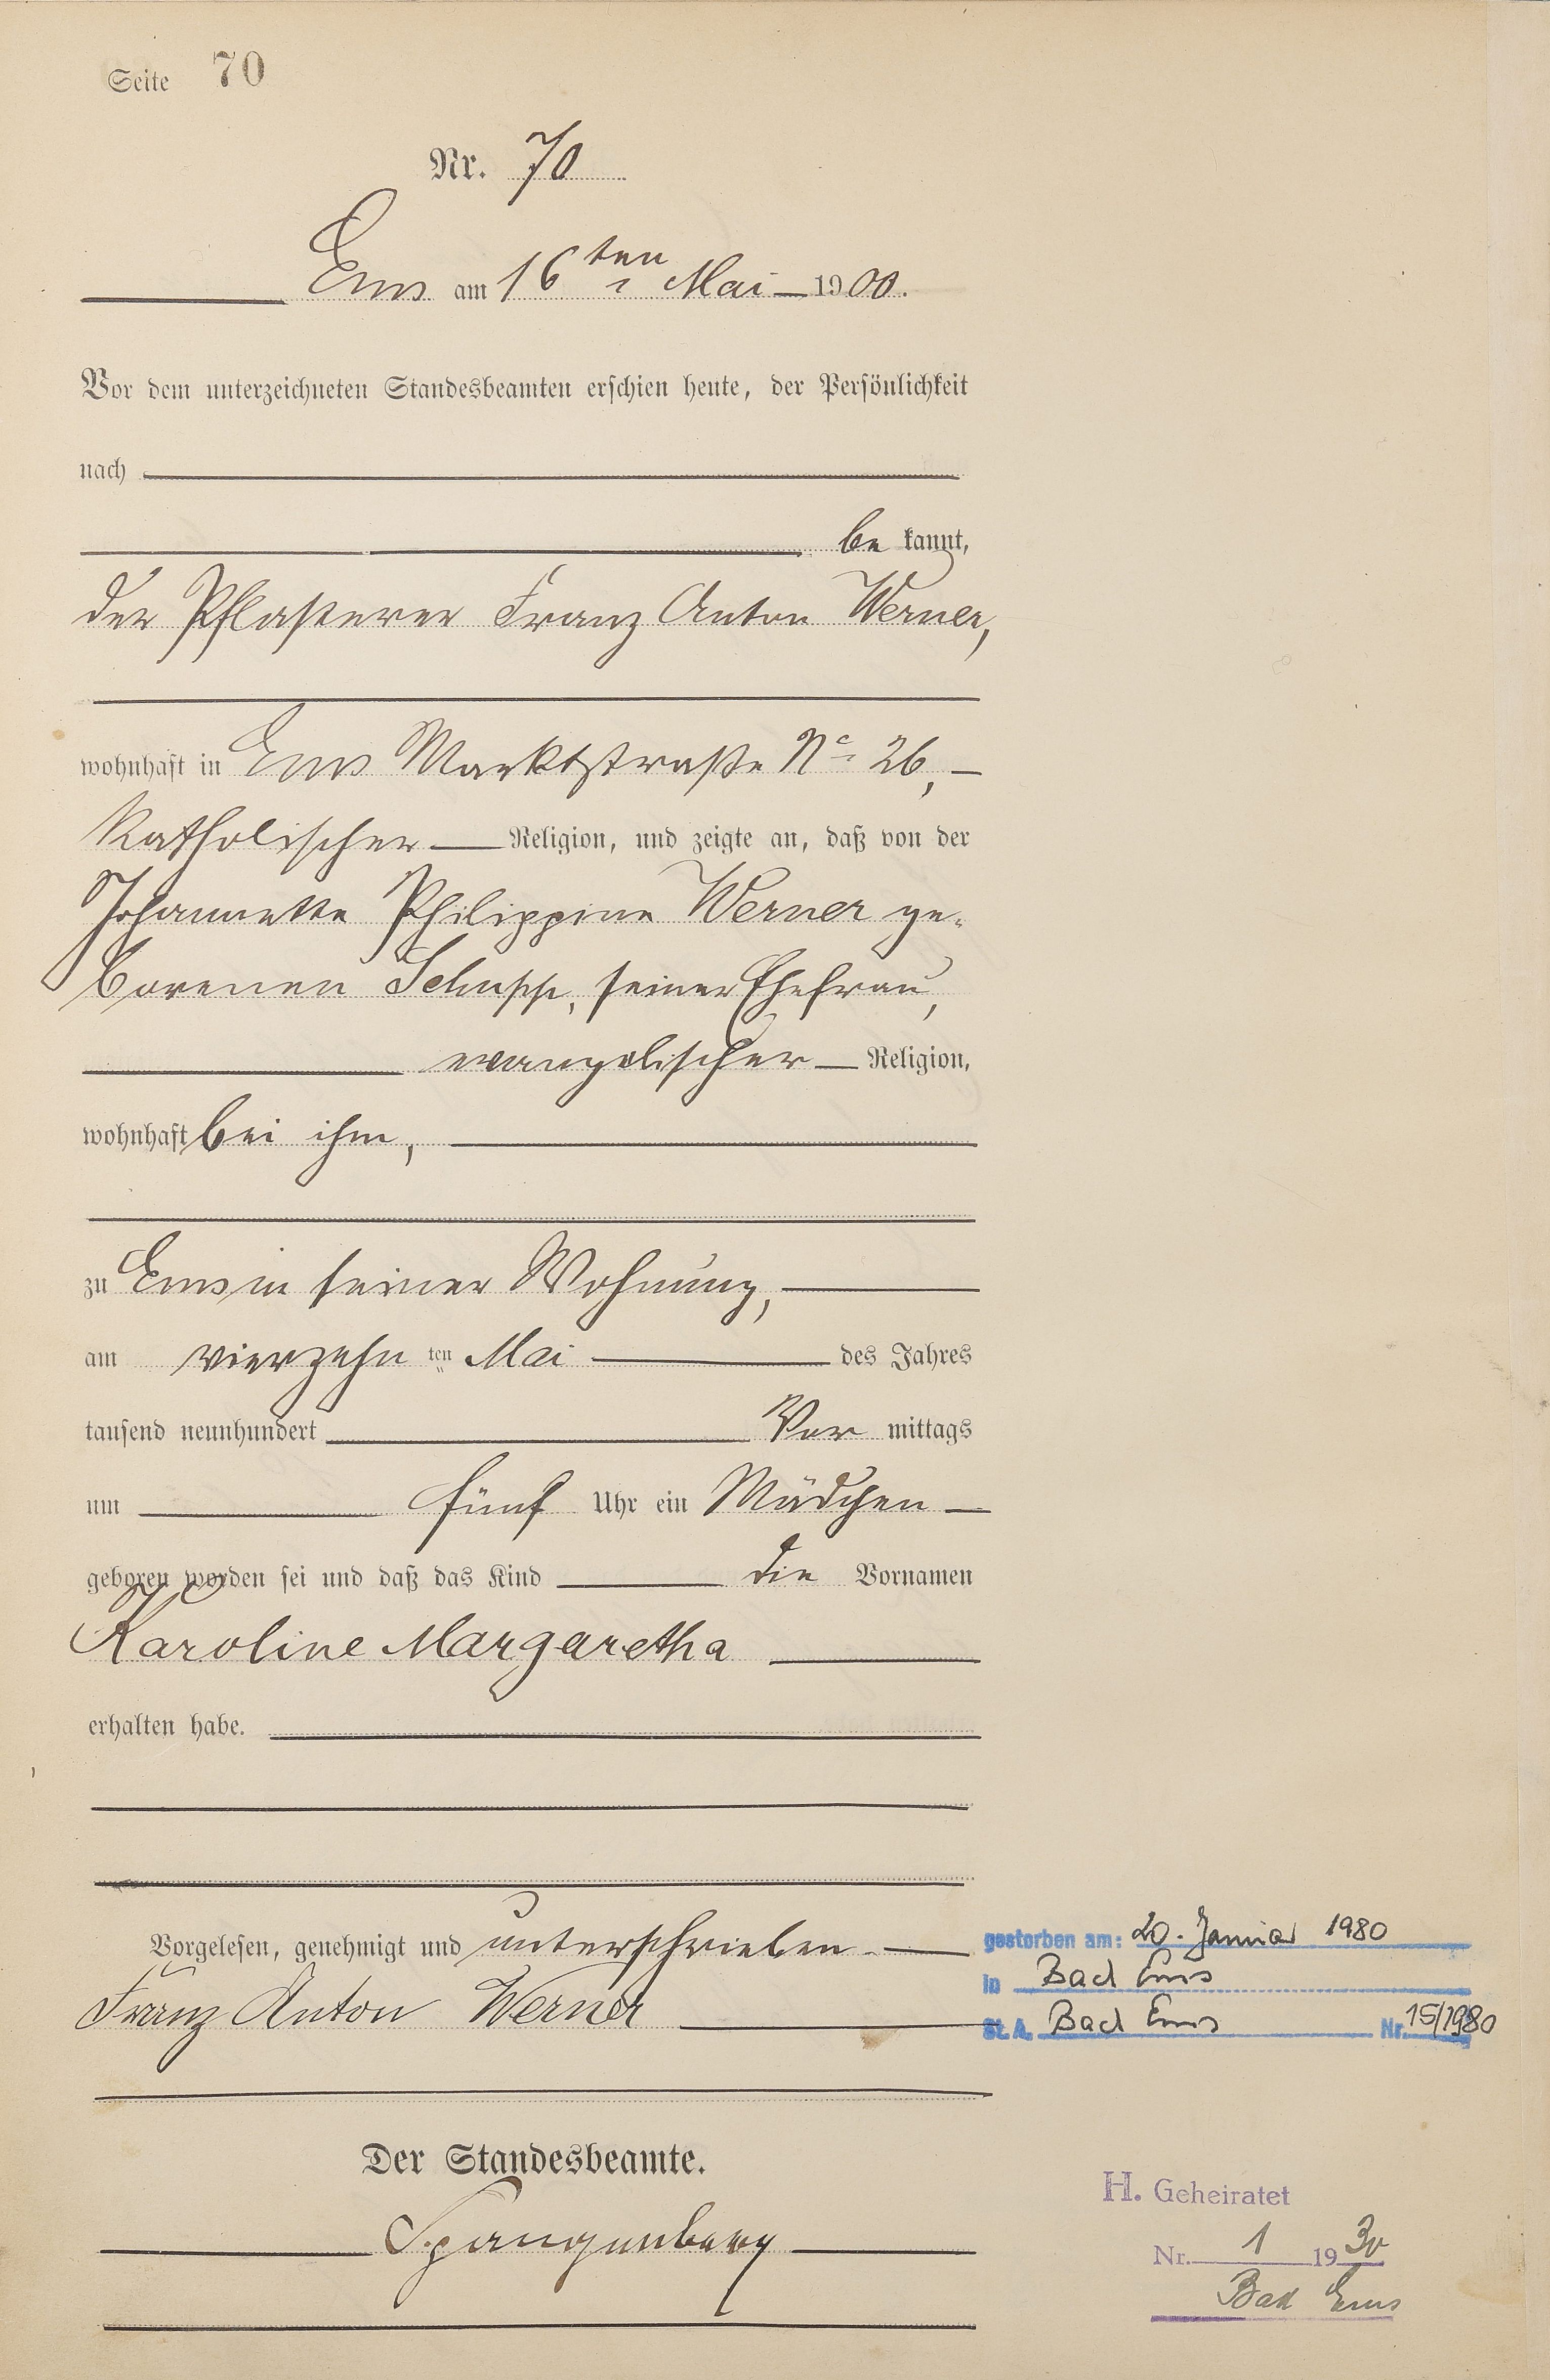 Seite 70
Nr. 70
Ems am 16ten Mai 1900.
Vor dem unterzeichneten Standesbeamten erschien heute, der Persönlichkeit
nach
be kannt,
der Pflasterer Franz Anton Werner,
wohnhaft in Ems Marktstraße No 26,
katholischer Religion, und zeigte an, daß von der
Johannette Philippine Werner ge-
borenen Schupp, seiner Ehefrau,
evangelischer Religion,
wohnhaft bei ihm,
zu Ems in seiner Wohnung,
am vierzehn ten Mai des Jahres
tausend neunhundert Vor mittags
um fünf Uhr ein Mädchen
geboren worden sei und daß das Kind die Vornamen
Karoline Margaretha
erhalten habe.
Vorgelesen, genehmigt und unterschrieben.
Franz Anton Werner
gestorben am: 20. Januar 1980
in Bad Ems
St. A. Bad Ems Nr. 15/1980
Der Standesbeamte.
Spangenberg
H. Geheiratet
Nr. 1 1930
Bad Ems